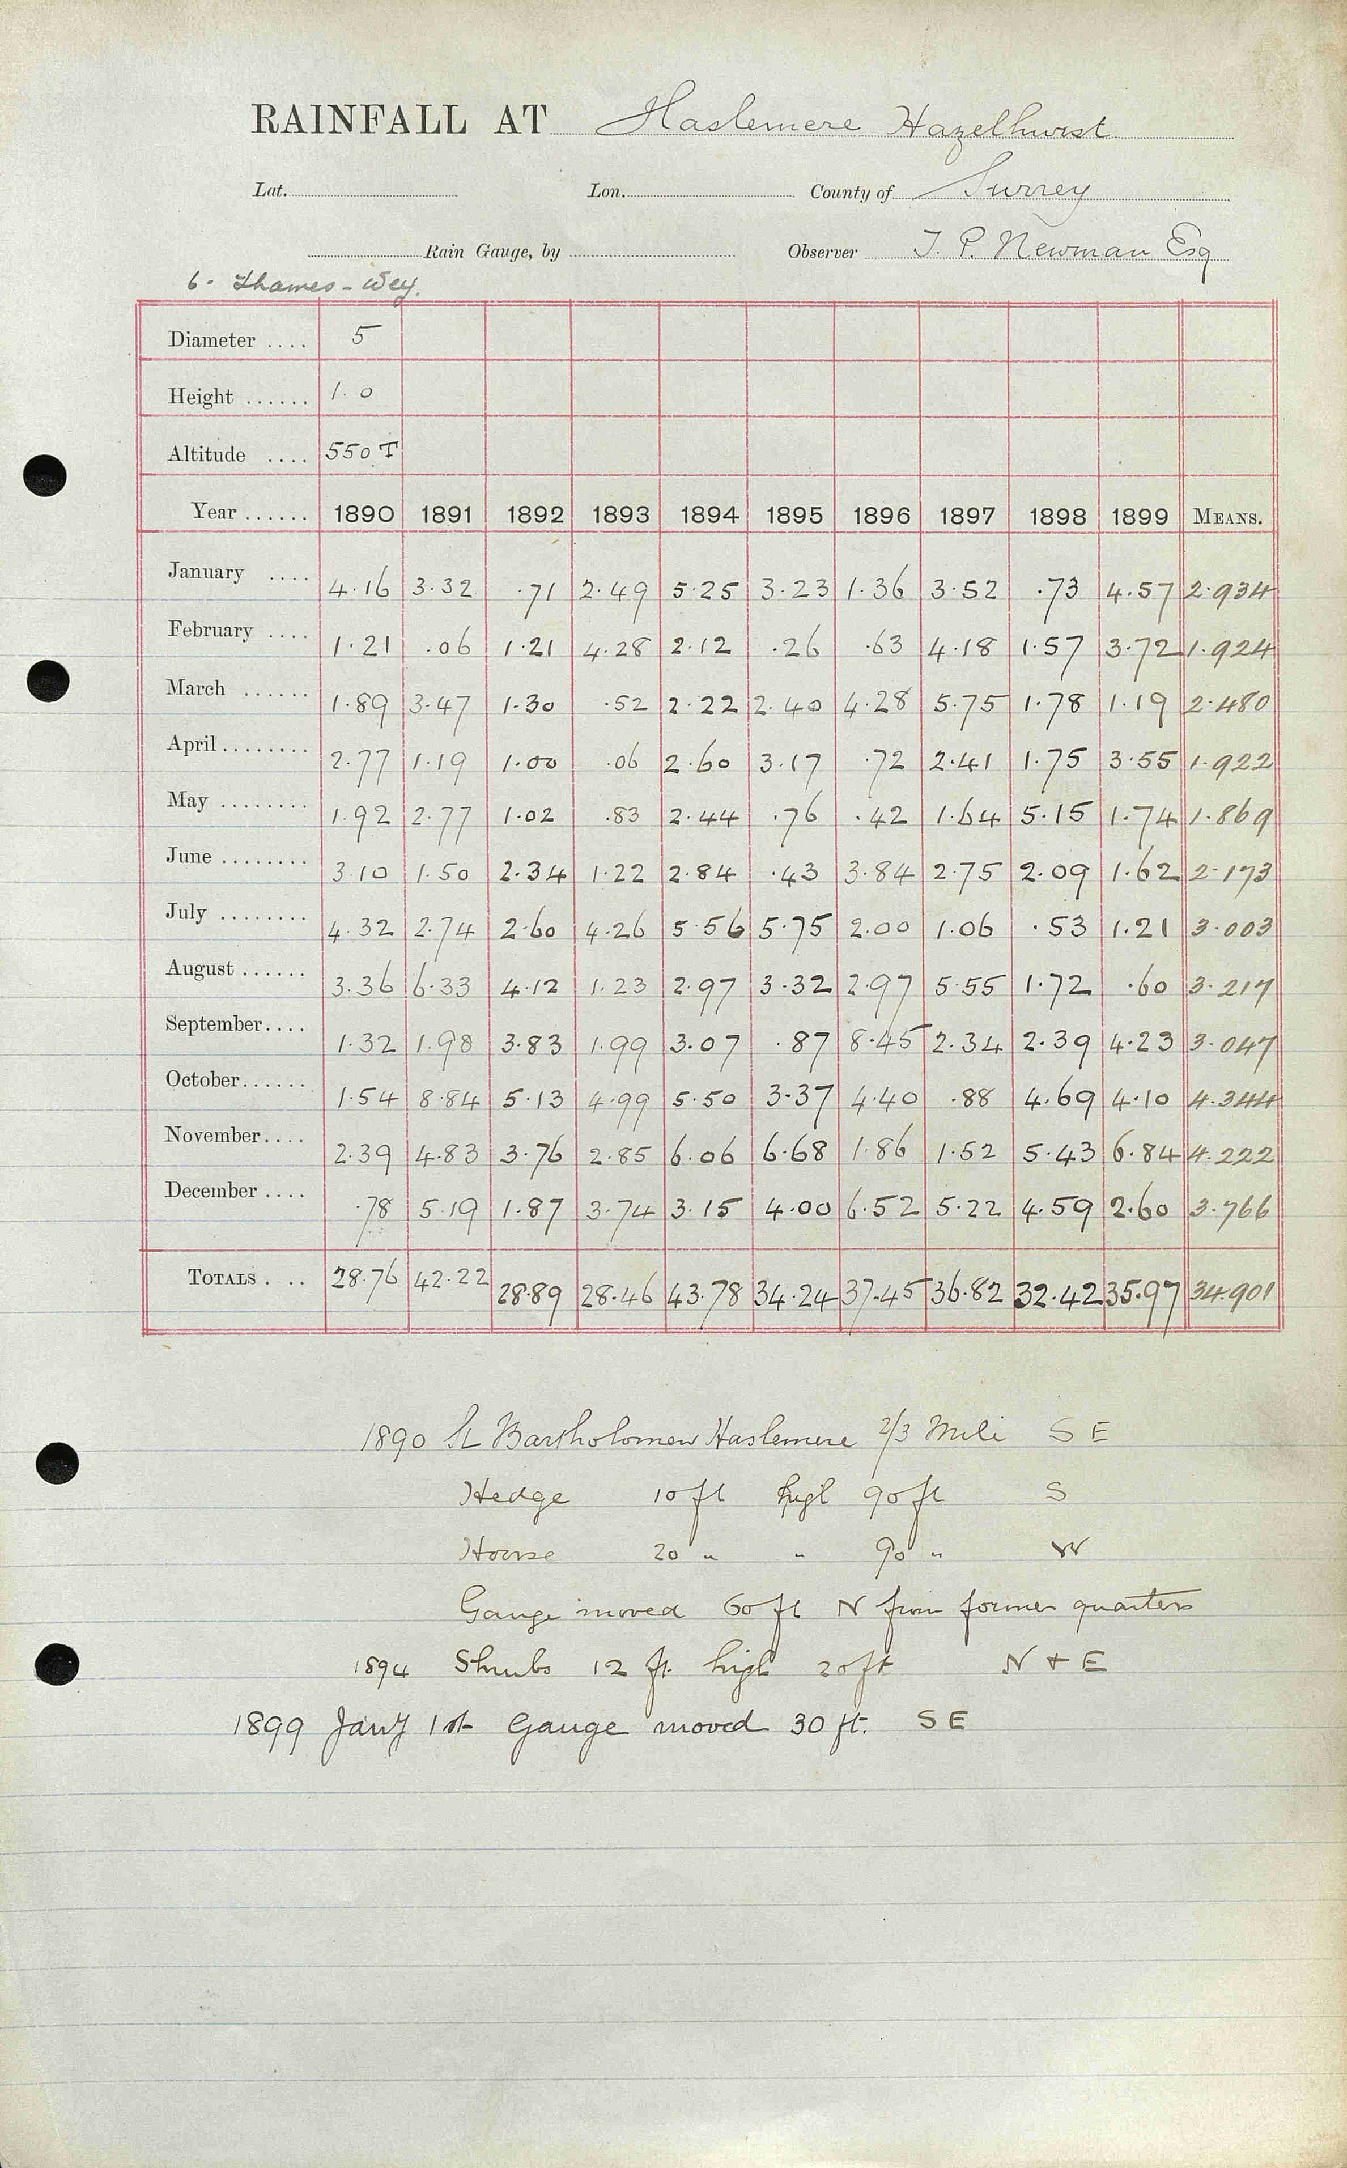 RAINFALL AT Haslemere Hazelhurst
Lat. Lon. County of Surrey
Rain Gauge, by Observer T. P. Newman Esq
6. Thames - Wey.
Diameter .... 5
Height ...... 1.0
Altitude .... 550 T
Year ...... 1890 1891 1892 1893 1894 1895 1896 1897 1898 1899 MEANS.
January .... 4.16 3.32 .71 2.49 5.25 3.23 1.36 3.52 .73 4.57 2.934
February .... 1.21 .06 1.21 4.28 2.12 .26 .63 4.18 1.57 3.72 1.924
March ...... 1.89 3.47 1.30 .52 2.22 2.40 4.28 5.75 1.78 1.19 2.480
April ........ 2.77 1.19 1.00 .06 2.60 3.17 .72 2.41 1.75 3.55 1.922
May ........ 1.92 2.77 1.02 .83 2.44 .76 .42 1.64 5.15 1.74 1.869
June ........ 3.10 1.50 2.34 1.22 2.84 .43 3.84 2.75 2.09 1.62 2.173
July ........ 4.32 2.74 2.60 4.26 5.56 5.75 2.00 1.06 .53 1.21 3.003
August ...... 3.36 6.33 4.12 1.23 2.97 3.32 2.97 5.55 1.72 .60 3.217
September .... 1.32 1.98 3.83 1.99 3.07 .87 8.45 2.34 2.39 4.23 3.047
October ...... 1.54 8.84 5.13 4.99 5.50 3.37 4.40 .88 4.69 4.10 4.344
November .... 2.39 4.83 3.76 2.85 6.06 6.68 1.86 1.52 5.43 6.84 4.222
December .... .78 5.19 1.87 3.74 3.15 4.00 6.52 5.22 4.59 2.60 3.766
TOTALS . .. 28.76 42.22 28.89 28.46 43.78 34.24 37.45 36.82 32.42 35.97 34.901
1890 St Bartholomew Haslemere 2/3 Mile S E
Hedge 10 ft high 90 ft S
House 20 " " 90 " W
Gauge moved 60 ft N from former quarters
1894 Shrubs 12 ft. high 20 ft N + E
1899 Jany 1st Gauge moved 30 ft. S E